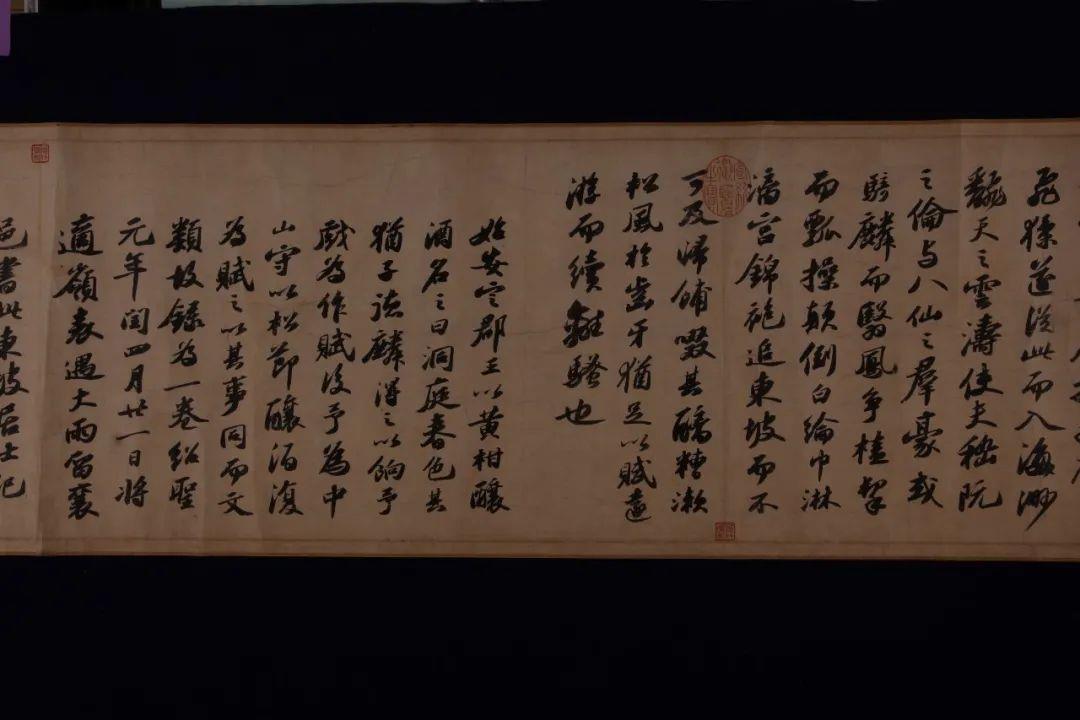 飛猱遂從此而入海渺
飜天之雲濤使夫嵇阮
之倫与八仙之羣豪或
騎麟而翳鳳爭榼挈
而瓢操顛倒白綸巾淋
漓宮錦袍追東坡而不
可及歸餔啜其醨糟漱
松風於齒牙猶足以賦遠
游而續離騷也
始安定郡王以黃柑釀
酒名之曰洞庭春色其
猶子德麟得之以餉予
戲為作賦後予為中
山守以松節釀酒復
為賦之以其事同而文
類故錄為一卷紹聖
元年閏四月廿一日將
適嶺表遇大雨留襄
邑書此東坡居士記